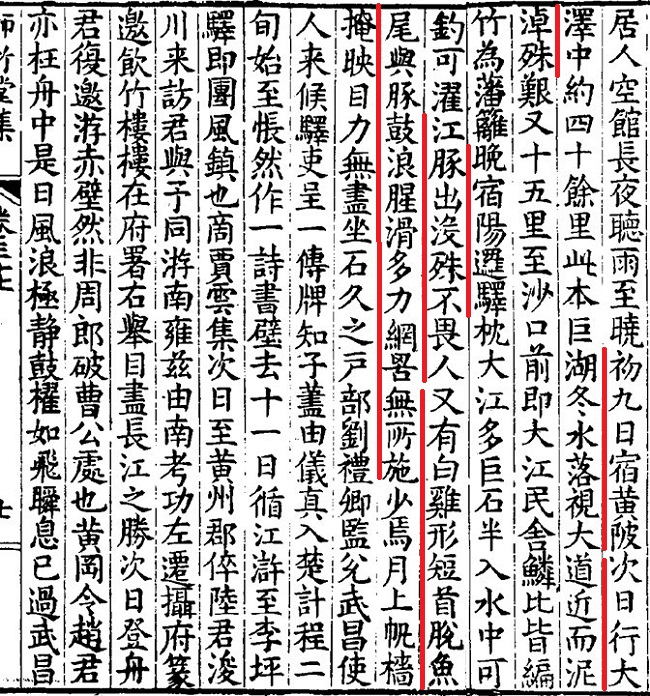 居人空館長夜聽雨至曉初九日宿黃陂次日行大
澤中約四十餘里此本巨湖冬水落視大道近而泥
淖殊艱又十五里至沙口前即大江民舍鱗比皆編
竹為藩籬晚宿陽邏驛枕大江多巨石半入水中可
釣可濯江豚出沒殊不畏人又有白雞形短首脫魚
尾與豚鼓浪腥滑多力網罟無所施少焉月上帆檣
掩映目力無盡坐石久之戸部劉禮卿監兌武昌使
人来候驛吏呈一傳牌知子藎由儀真入楚計程二
旬始至悵然作一詩書壁去十一日循江滸至李坪
驛即團風鎮也商賈雲集次日至黃州郡倅陸君浚
川来訪君與予同游南雍兹由南考功左遷攝府篆
邀飲竹樓樓在府署右舉目盡長江之勝次日登舟
君復邀游赤壁然非周郎破曹公處也黃岡令趙君
亦枉舟中是日風浪極静鼓櫂如飛瞬息已過武昌
師竹堂集